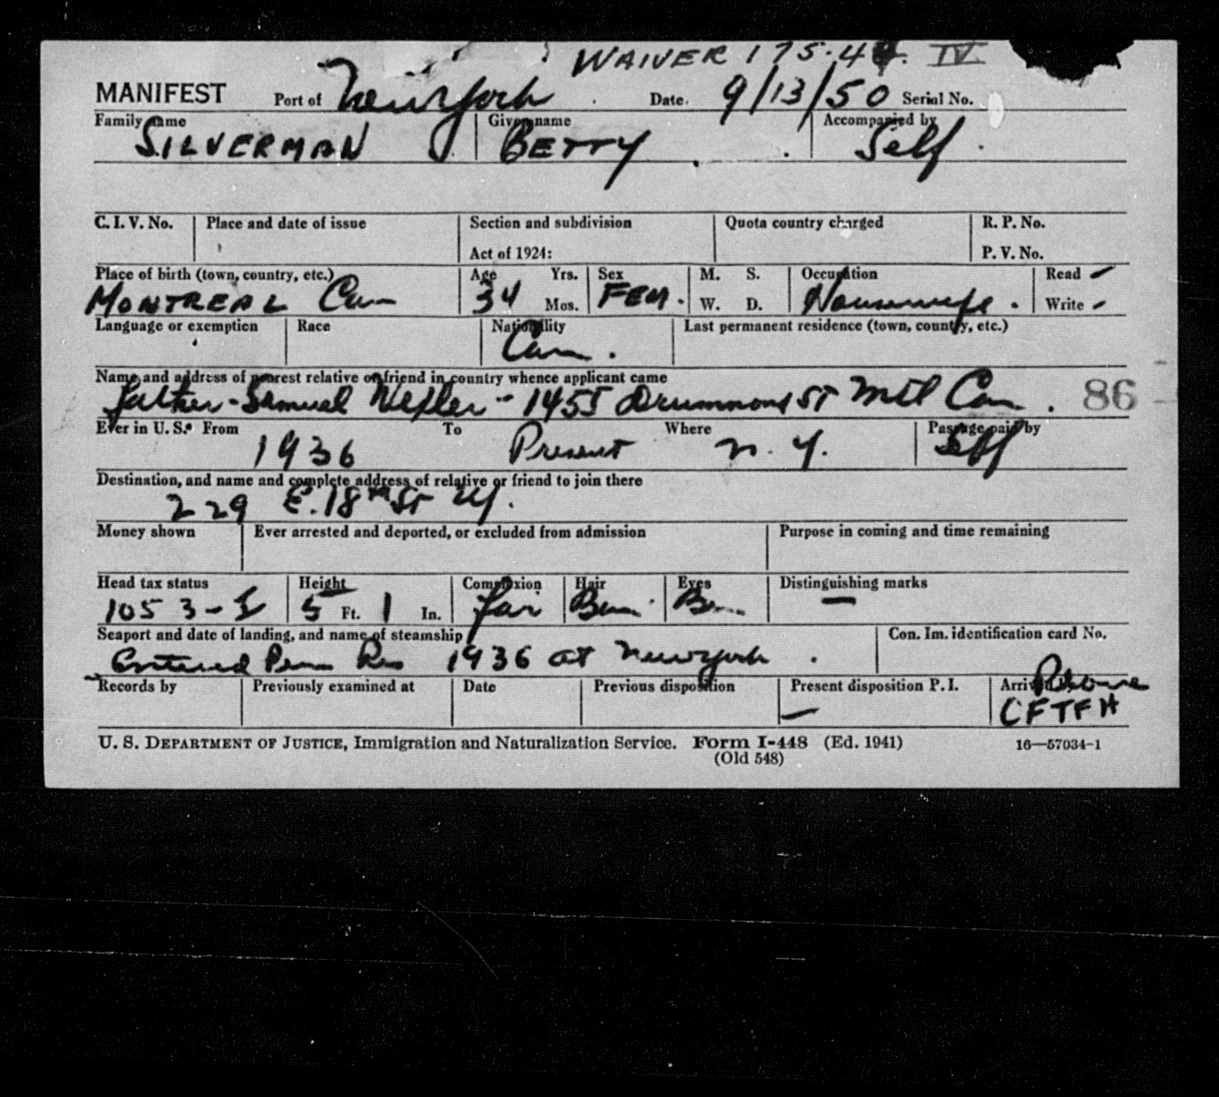 WAIVER 175.4 IV
MANIFEST Port of New York Date 9/13/50 Serial No.
Family name Given name Accompanied by
SILVERMAN BETTY Self
C. I. V. No. Place and date of issue Section and subdivision Quota country charged R. P. No.
Act of 1924: P. V. No.
Place of birth (town, country, etc.) Age Yrs. Sex M. S. Occupation Read
MONTREAL Can 34 Mos. FEM. W. D. Housewife. Write
Language or exemption Race Nationality Last permanent residence (town, country, etc.)
Can.
Name and address of nearest relative or friend in country whence applicant came
father - Samuel - 1455 Drummond ST Mtl Can. 86
Ever in U. S. From To Where Passage paid by
1936 Present N. Y. Self
Destination, and name and complete address of relative or friend to join there
229 E. 18th St NY.
Money shown Ever arrested and deported, or excluded from admission Purpose in coming and time remaining
Head tax status Height Complexion Hair Eyes Distinguishing marks
105 3-I 5 Ft. 1 In. fair Brn Brn —
Seaport and date of landing, and name of steamship Con. Im. identification card No.
Entered Perm Res 1936 at New York.
Records by Previously examined at Date Previous disposition Present disposition P. I. Arrived
— CFTFH
U. S. DEPARTMENT OF JUSTICE, Immigration and Naturalization Service. Form I-448 (Ed. 1941) 16—57034-1
(Old 548)